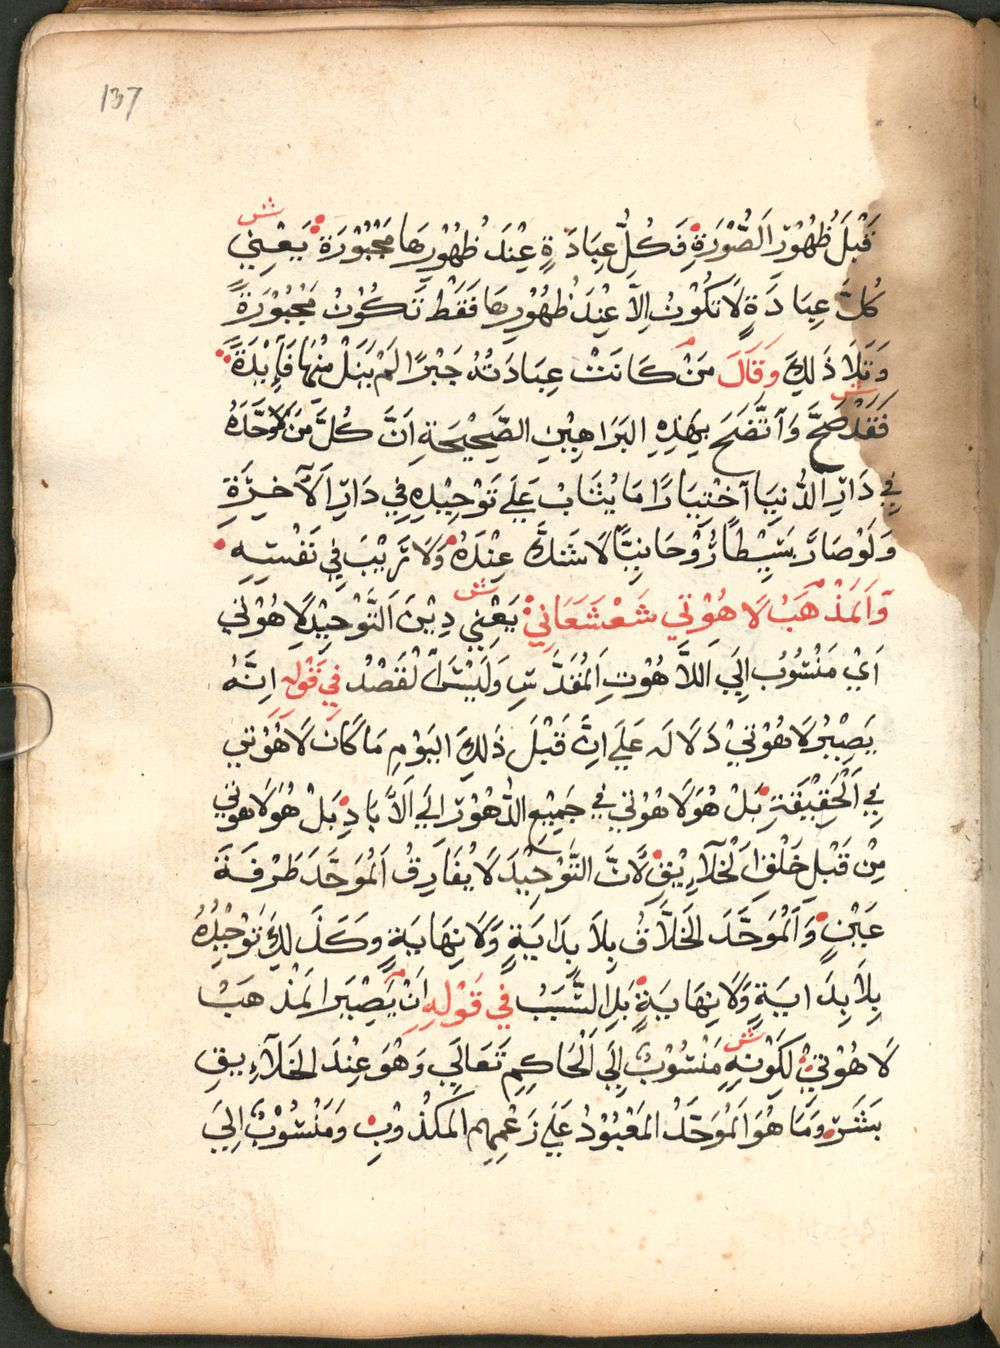 137
ش
قَبْلَ ظُهُوْرِ الصُّوْرَةِ فَكُلُّ عِبَادَةٍ عِنْدَ ظُهُوْرِهَا مَجْبُوْرَةٌ يَعْنِيْ
كُلَّ عِبَادَةٍ لَا تَكُوْنُ اِلَّا عِنْدَ ظُهُوْرِهَا فَقَطْ تَكُوْنُ مَجْبُوْرَةً
وَتَلَا ذَلِكَ وَقَالَ مَنْ كَانَتْ عِبَادَتُهُ جَبْرًا لَمْ يَنَلْ مِنْهَا فَاِيْدَةً
ش
فَقَدْ صَحَّ وَاَتَّضَحَ بِهَذِهِ البَرَاهِيْنِ الصَّحِيْحَةِ اَنَّ كُلَّ مَنْ لَا وَحَّدَهُ
فِي دَارِ اَلدُّنيَا اَخْتِيَارًا مَا يُثَابْ عَلَي تَوْحِيْدِهِ فِي دَارِ اَلآخِرَةِ
وَلَوْ صَارَ بَسِيْطًا رُوْحَانِيًّا لَا شَكَّ عِنْدَهُ وَلَا رَيْبَ فِي نَفْسِهِ
وَاَلمَذْهَبْ لَاهُوْتِي شَعْشَعَانِيْ يَعْنِي دِيْنَ اَلتَّوْحِيْدِ لَاهُوْتِي
ش
اَيْ مَنْسُوْبُ اِلَي اللَّاهُوْتِ اَلمُقَدَّسِ وَلَيْسَ الْقَصْدُ فِي قَوْلِهِ اِنَّهُ
يَصِيْرُ لَاهُوْتِيْ دَلَالَه عَلَي اِنَّ قَبْلَ ذَلِكَ اليَوْمِ مَا كَانَ لَاهُوْتِي
فِي اَلْحَقِيْقَةِ بَلْ هُوَ لَاهُوْتِي فِي جَمِيْعِ الدُّهُوْرِ اِلَي اَلآبَادِ بَلْ هُوَ لَاهُوتِي
مِنْ قَبْلِ خَلْقِ اَلْخَلَآيِقِ لِاَنَّ التَّوْحِيْدَ لَا يُفَارِقُ اَلْمُوَحَّدَ طَرْفَةَ
عَيْنٍ وَاَلْمُوَحَّدَ الخَلَّاقُ بِلَا بِدَايَةٍ وَلَا نِهَايَةٍ وَكَذَلِكَ تَوْحِيْدُهُ
بِلَا بِدَايَةٍ وَلَا نِهَايَةٍ بَلِ السَّبَبْ فِي قَوْلِهِ اَنْ يَصِيْرَ المَذْهَبْ
لَاهُوْتِيْ لِكَوْنِهِ مَنْسُوْبٌ اِلَي اَلْحَاكِمِ تَعَالَي وَهُوَ عِنْدَ الخَلَآيِقِ
ش
بَشَرٌ وَمَا هُوَ اَلْمُوَحَّدُ المَعْبُوْدُ عَلَي زَعْمِهِم المَكْذُوْبِ وَمَنْسُوْبٌ اِلَيَ